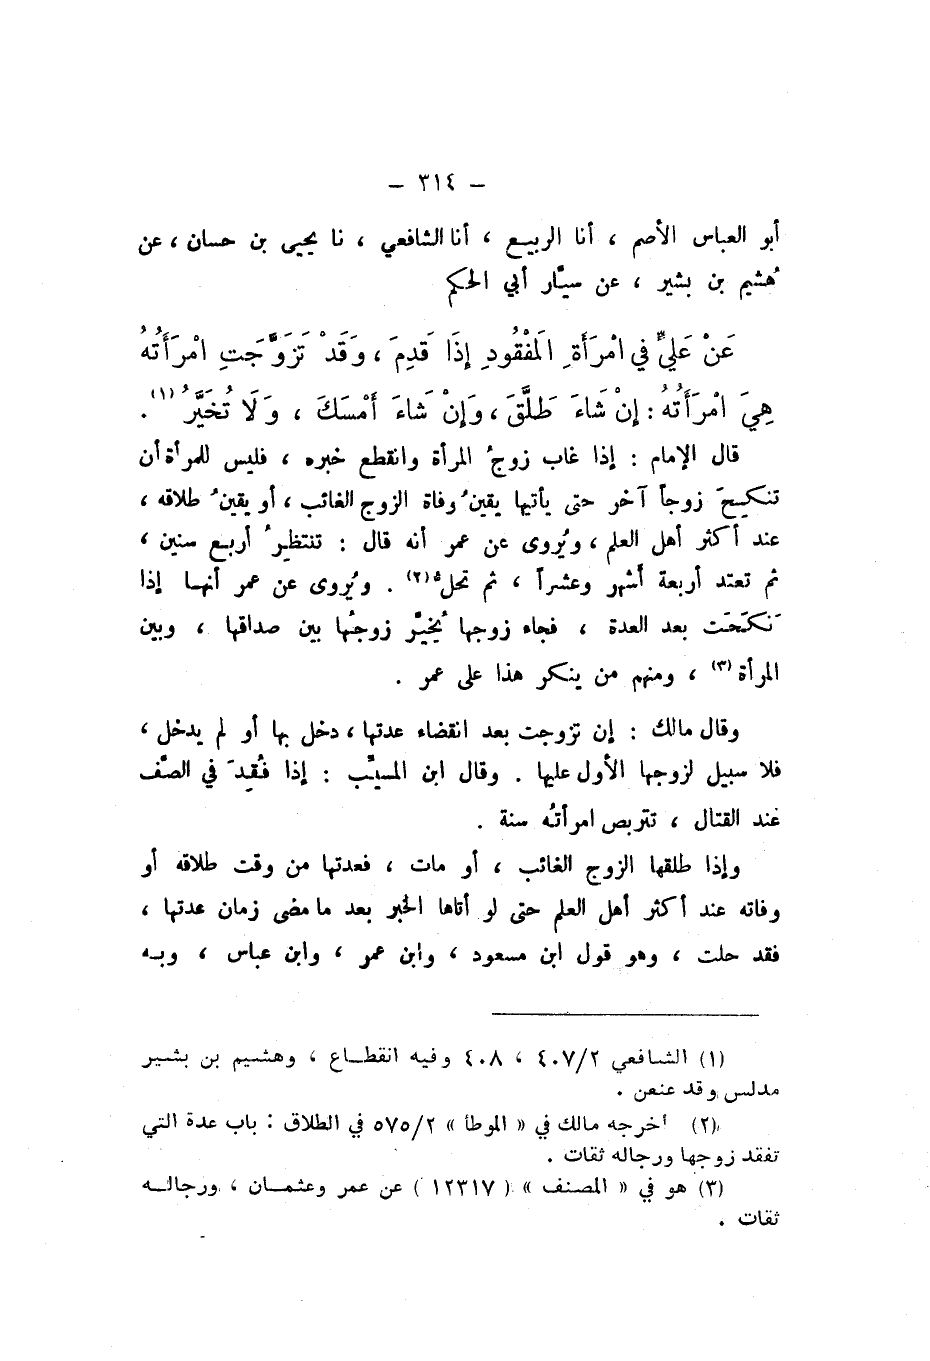 – ٣١٤ –
أبو العباس الأصم ، أنا الربيع ، أنا الشافعي ، نا يحيى بن حسان ، عن
هُشيم بن بشير ، عن سيَّار أبي الحكم
عَنْ عَلِيٍّ فِي امْرَأَةِ الْمَفْقُودِ إِذَا قَدِمَ ، وَقَدْ تَزَوَّجَتِ امْرَأَتُهُ
هِيَ امْرَأَتُهُ : إِنْ شَاءَ طَلَّقَ ، وَإِنْ شَاءَ أَمْسَكَ ، وَلَا تُخَيَّرُ (١) .
قال الإمام : إذا غاب زوجُ المرأة وانقطع خبره ، فليس للمرأة أن
تنكِحَ زوجاً آخر حتى يأتيها يقينُ وفاة الزوج الغائب ، أو يقينُ طلاقه ،
عند أكثر أهل العلم ، ويُروى عن عمر أنه قال : تنتظرُ أربع سنين ،
ثم تعتد أربعة أشهر وعشراً ، ثم تحلُّ (٢) . ويُروى عن عمر أنهـا إذا
نَكَحَت بعد العدة ، فجاء زوجها يُخيَّر زوجُها بين صداقها ، وبين
المرأة (٣) ، ومنهم من ينكر هذا على عمر .
وقال مالك : إن تزوجت بعد انقضاء عدتها ، دخل بها أو لم يدخل ،
فلا سبيل لزوجها الأول عليها . وقال ابن المسيَّب : إذا فُقِدَ في الصَّف
عند القتال ، تتربص امرأتُه سنة .
وإذا طلقها الزوج الغائب ، أو مات ، فعدتها من وقت طلاقه أو
وفاته عند أكثر أهل العلم حتى لو أتاها الخبر بعد ما مضى زمان عدتها ،
فقد حلت ، وهو قول ابن مسعود ، وابن عمر ، وابن عباس ، وبـه
(١) الشـافعي ٤٠٧/٢ ، ٤٠٨ وفيه انقطـاع ، وهشـيم بن بشـير
مدلس وقد عنعن .
(٢) أخرجه مالك في « الموطأ » ٥٧٥/٢ في الطلاق : باب عدة التي
تفقد زوجها ورجاله ثقات .
(٣) هو في « المصنف » ( ١٢٣١٧ ) عن عمر وعثمـان ، ورجالـه
ثقات .